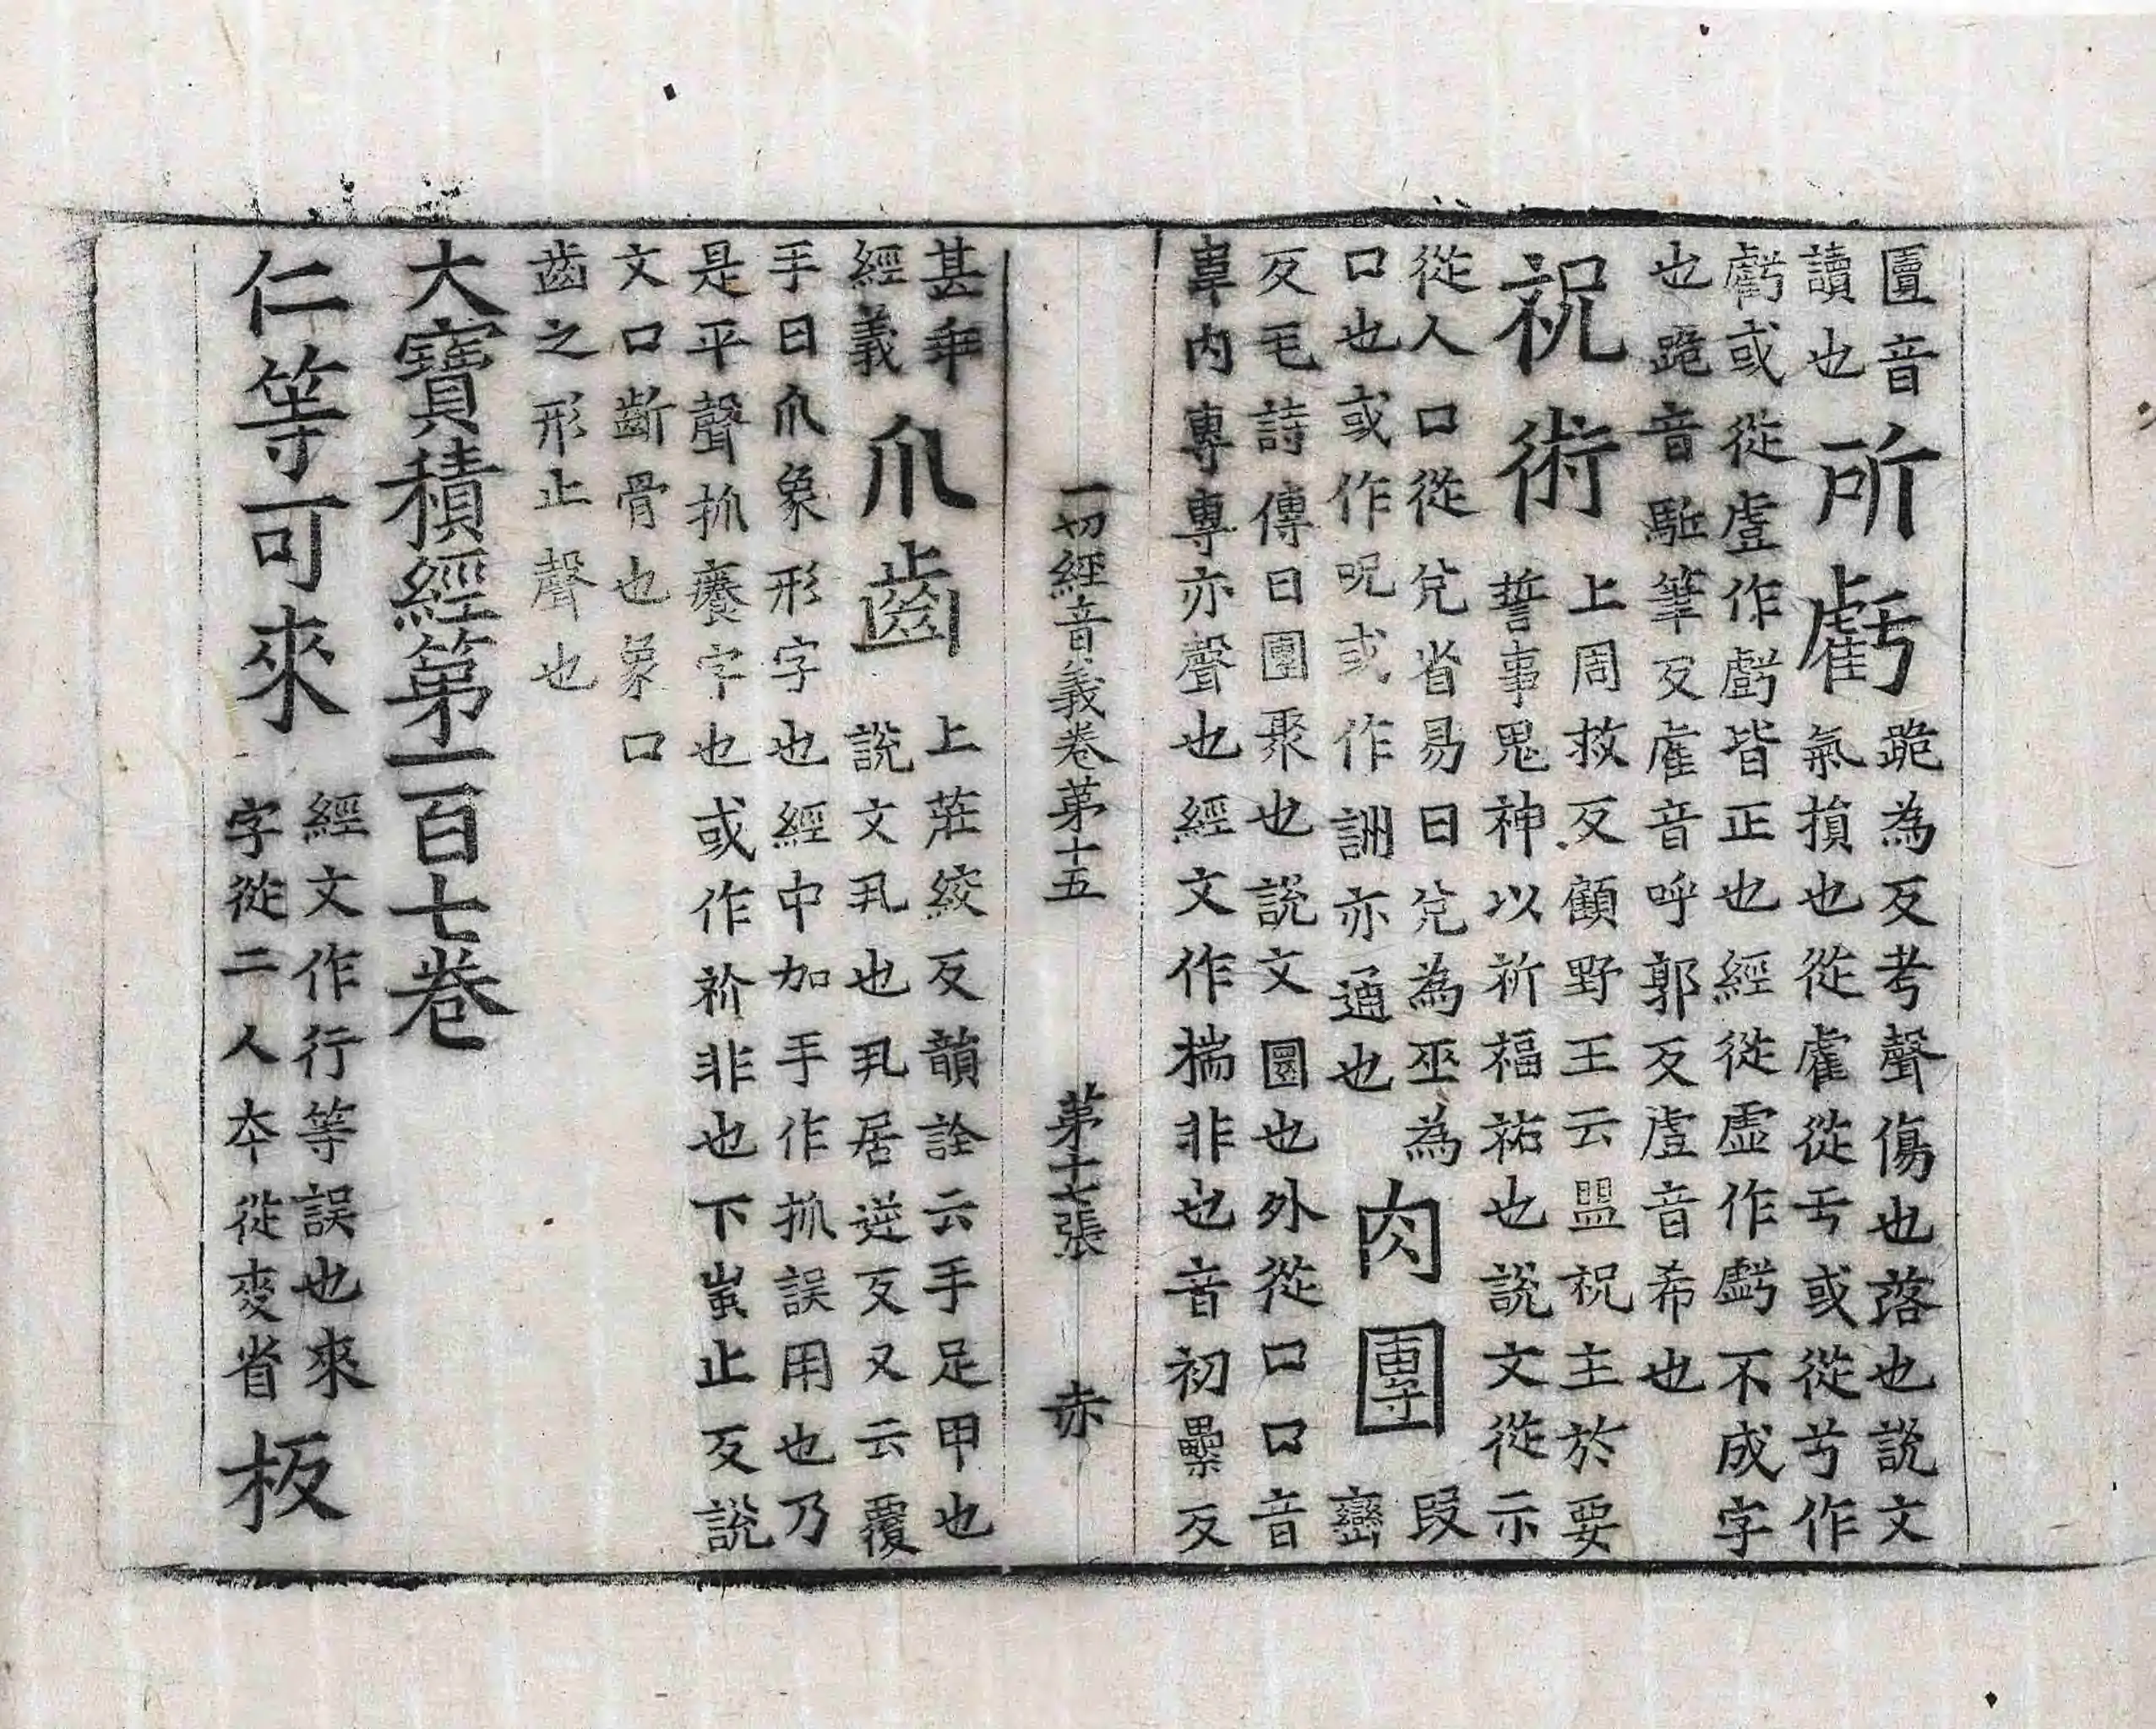 匱音
讀也
所虧
跪為反考聲傷也落也說文
氣損也從雐從亏或從兮作
虧或從壺作虧皆正也經從虛作虧不成字
也跪音駈筆反雐音呼郭反虗音希也
祝術
上周救反顧野王云盟祝主於要
誓事鬼神以祈福祐也說文從示
從人口從兊省易曰兊為巫為
口也或作呪或作詶亦通也
肉團
段巒
反毛詩傳曰團聚也說文圜也外從口口音
韋內專專亦聲也經文作揣非也音初壘反
一切經音義卷第十五　第十七張　赤
甚乖
經義
爪齒
上莊絞反韻詮云手足甲也
說文丮也丮居逆反又云覆
手曰爪象形字也經中加手作抓誤用也乃
是平聲抓癢字也或作䘕非也下蚩止反說
文口齗骨也象口
齒之形止聲也
大寶積經第一百七卷
仁等可來
經文作行等誤也來
字從二人夲從麥省
板